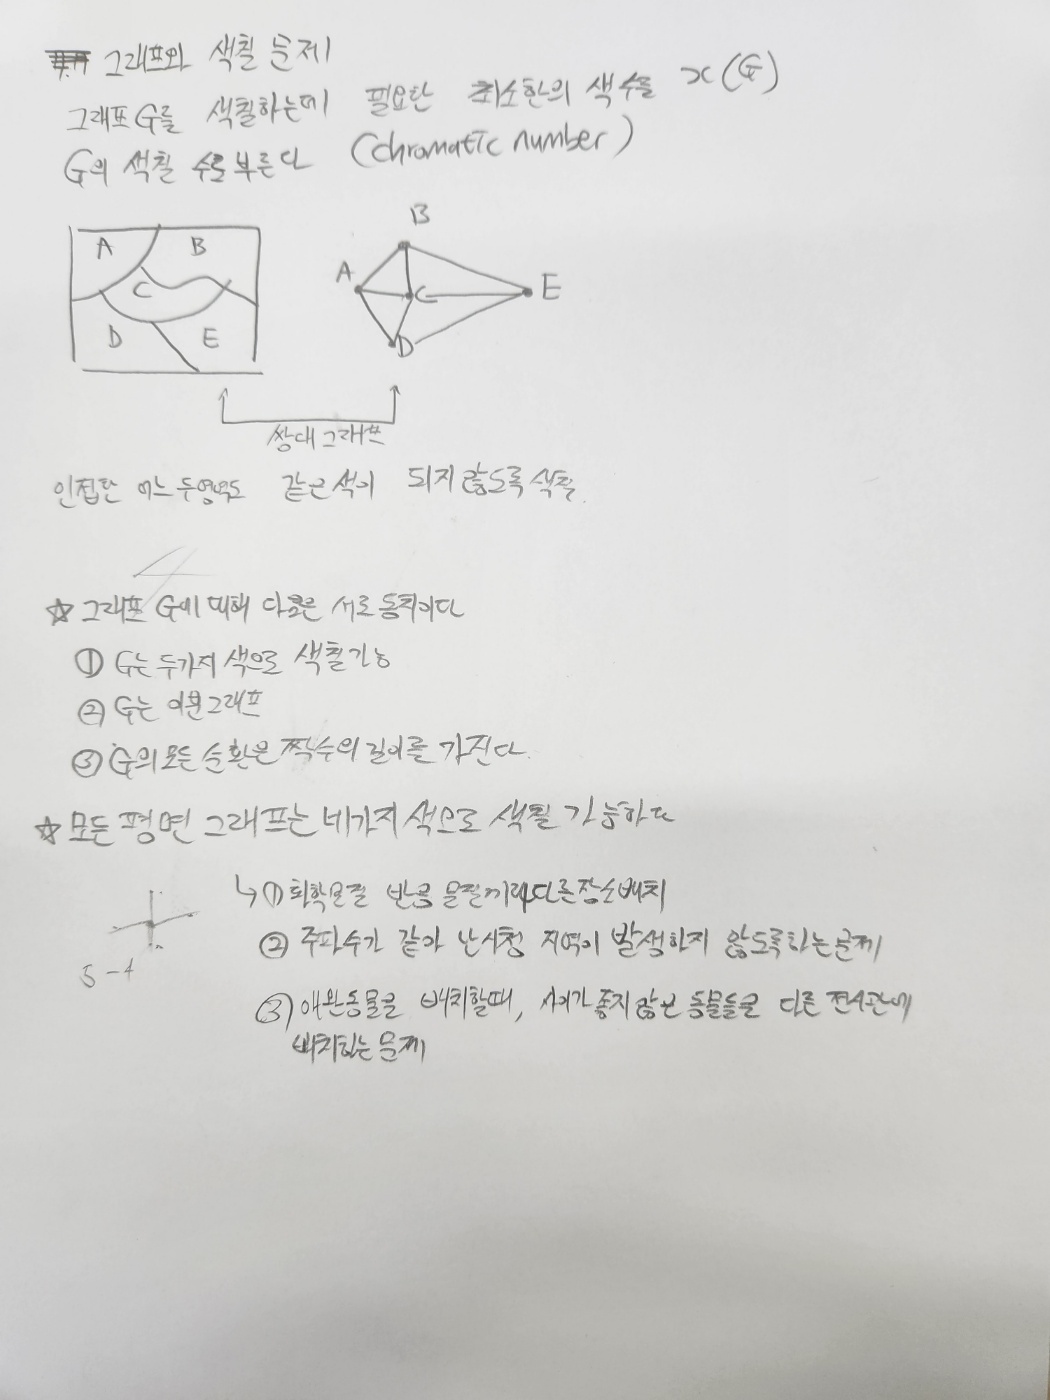 그래프와 색칠 문제
그래프 G를 색칠하는데 필요한 최소한의 색수를 x(G)
G의 색칠 수로 부른다 (chromatic number)
A B C D E
A B C D E
쌍대그래프
인접한 어느 두영역도 같은색이 되지 않도록 색칠
☆ 그래프 G에 대해 다음은 서로 동치이다
① G는 두가지 색으로 색칠가능
② G는 이분그래프
③ G의 모든 순환은 짝수의 길이를 가진다.
☆ 모든 평면 그래프는 네가지 색으로 색칠 가능하다
↳ ① 화학물질 반응 물질끼리 다른장소배치
② 주파수가 같아 난시청 지역이 발생하지 않도록하는문제
5-4
③ 애완동물을 배치할때, 사이가 좋지 않은 동물들을 다른 전시관에
배치하는 문제